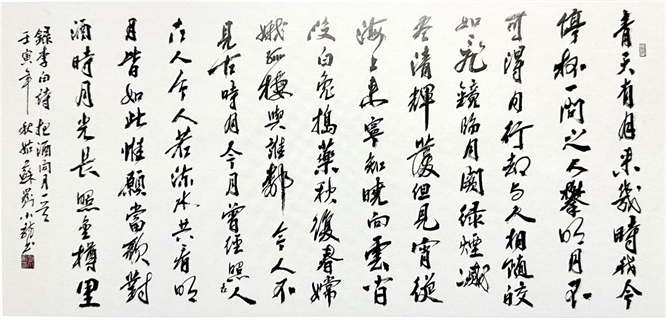 青天有月来幾時我今
停杯一问之人攀明月不
可得月行却与人相随皎
如飛鏡临丹闕緑煙滅
尽清輝發但見宵從
海上来寧知曉向雲间
没白兔搗藥秋復春嫦
娥孤棲與誰鄰今人不
見古時月今月曾經照古人
古人今人若流水共看明
月皆如此惟願當歌對
酒時月光長照金樽里
録李白詩把酒问月一首
壬寅年秋姑蘇劉小书